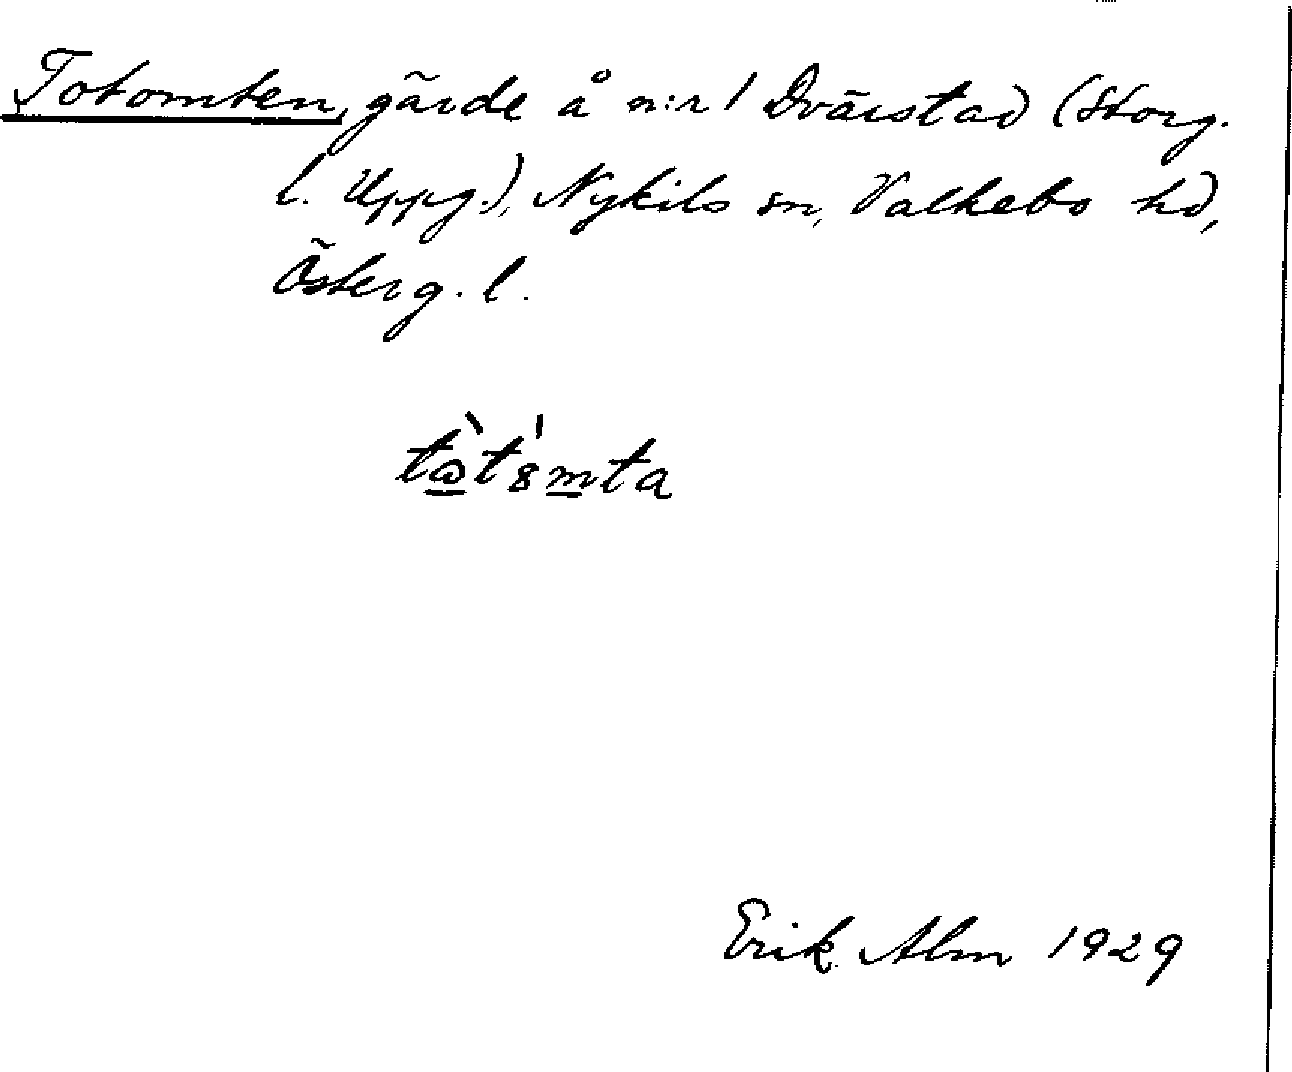 Totomten, gärde å n:r 1 Dvärstad (Storg.
l. Uppg.), Nykils sn, Valkebo hd,
Österg. l.
Erik Alm 1929